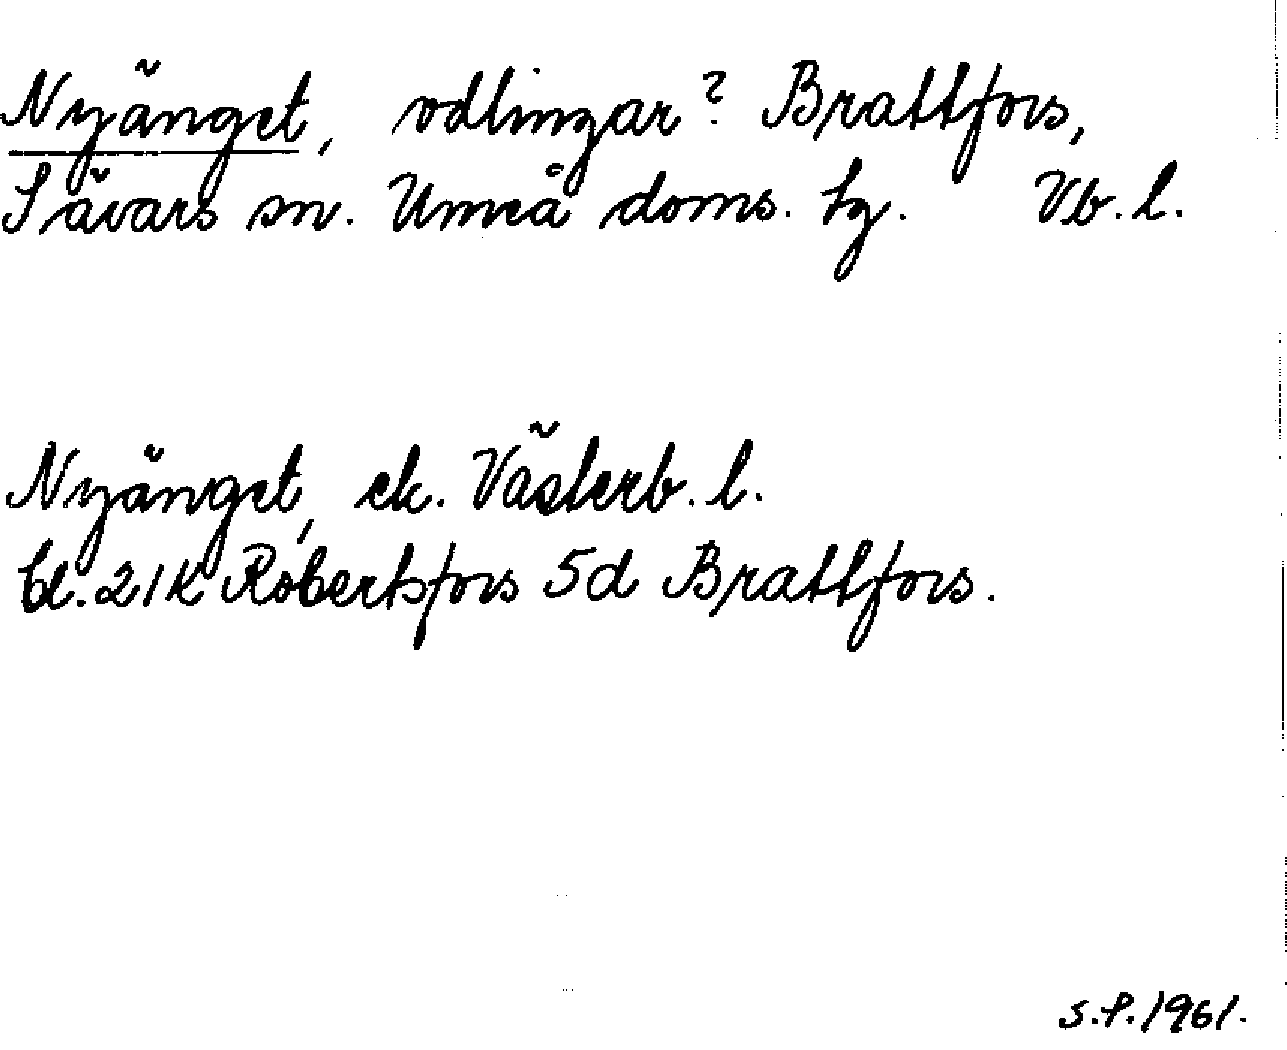 Nyänget, odlingar? Brattfors,
Sävars sn. Umeå doms. tg. Vb. l.
Nyänget, ek. Västerb. l.
bl. 21K Robertsfors 5d Brattfors.
S.P. 1961.